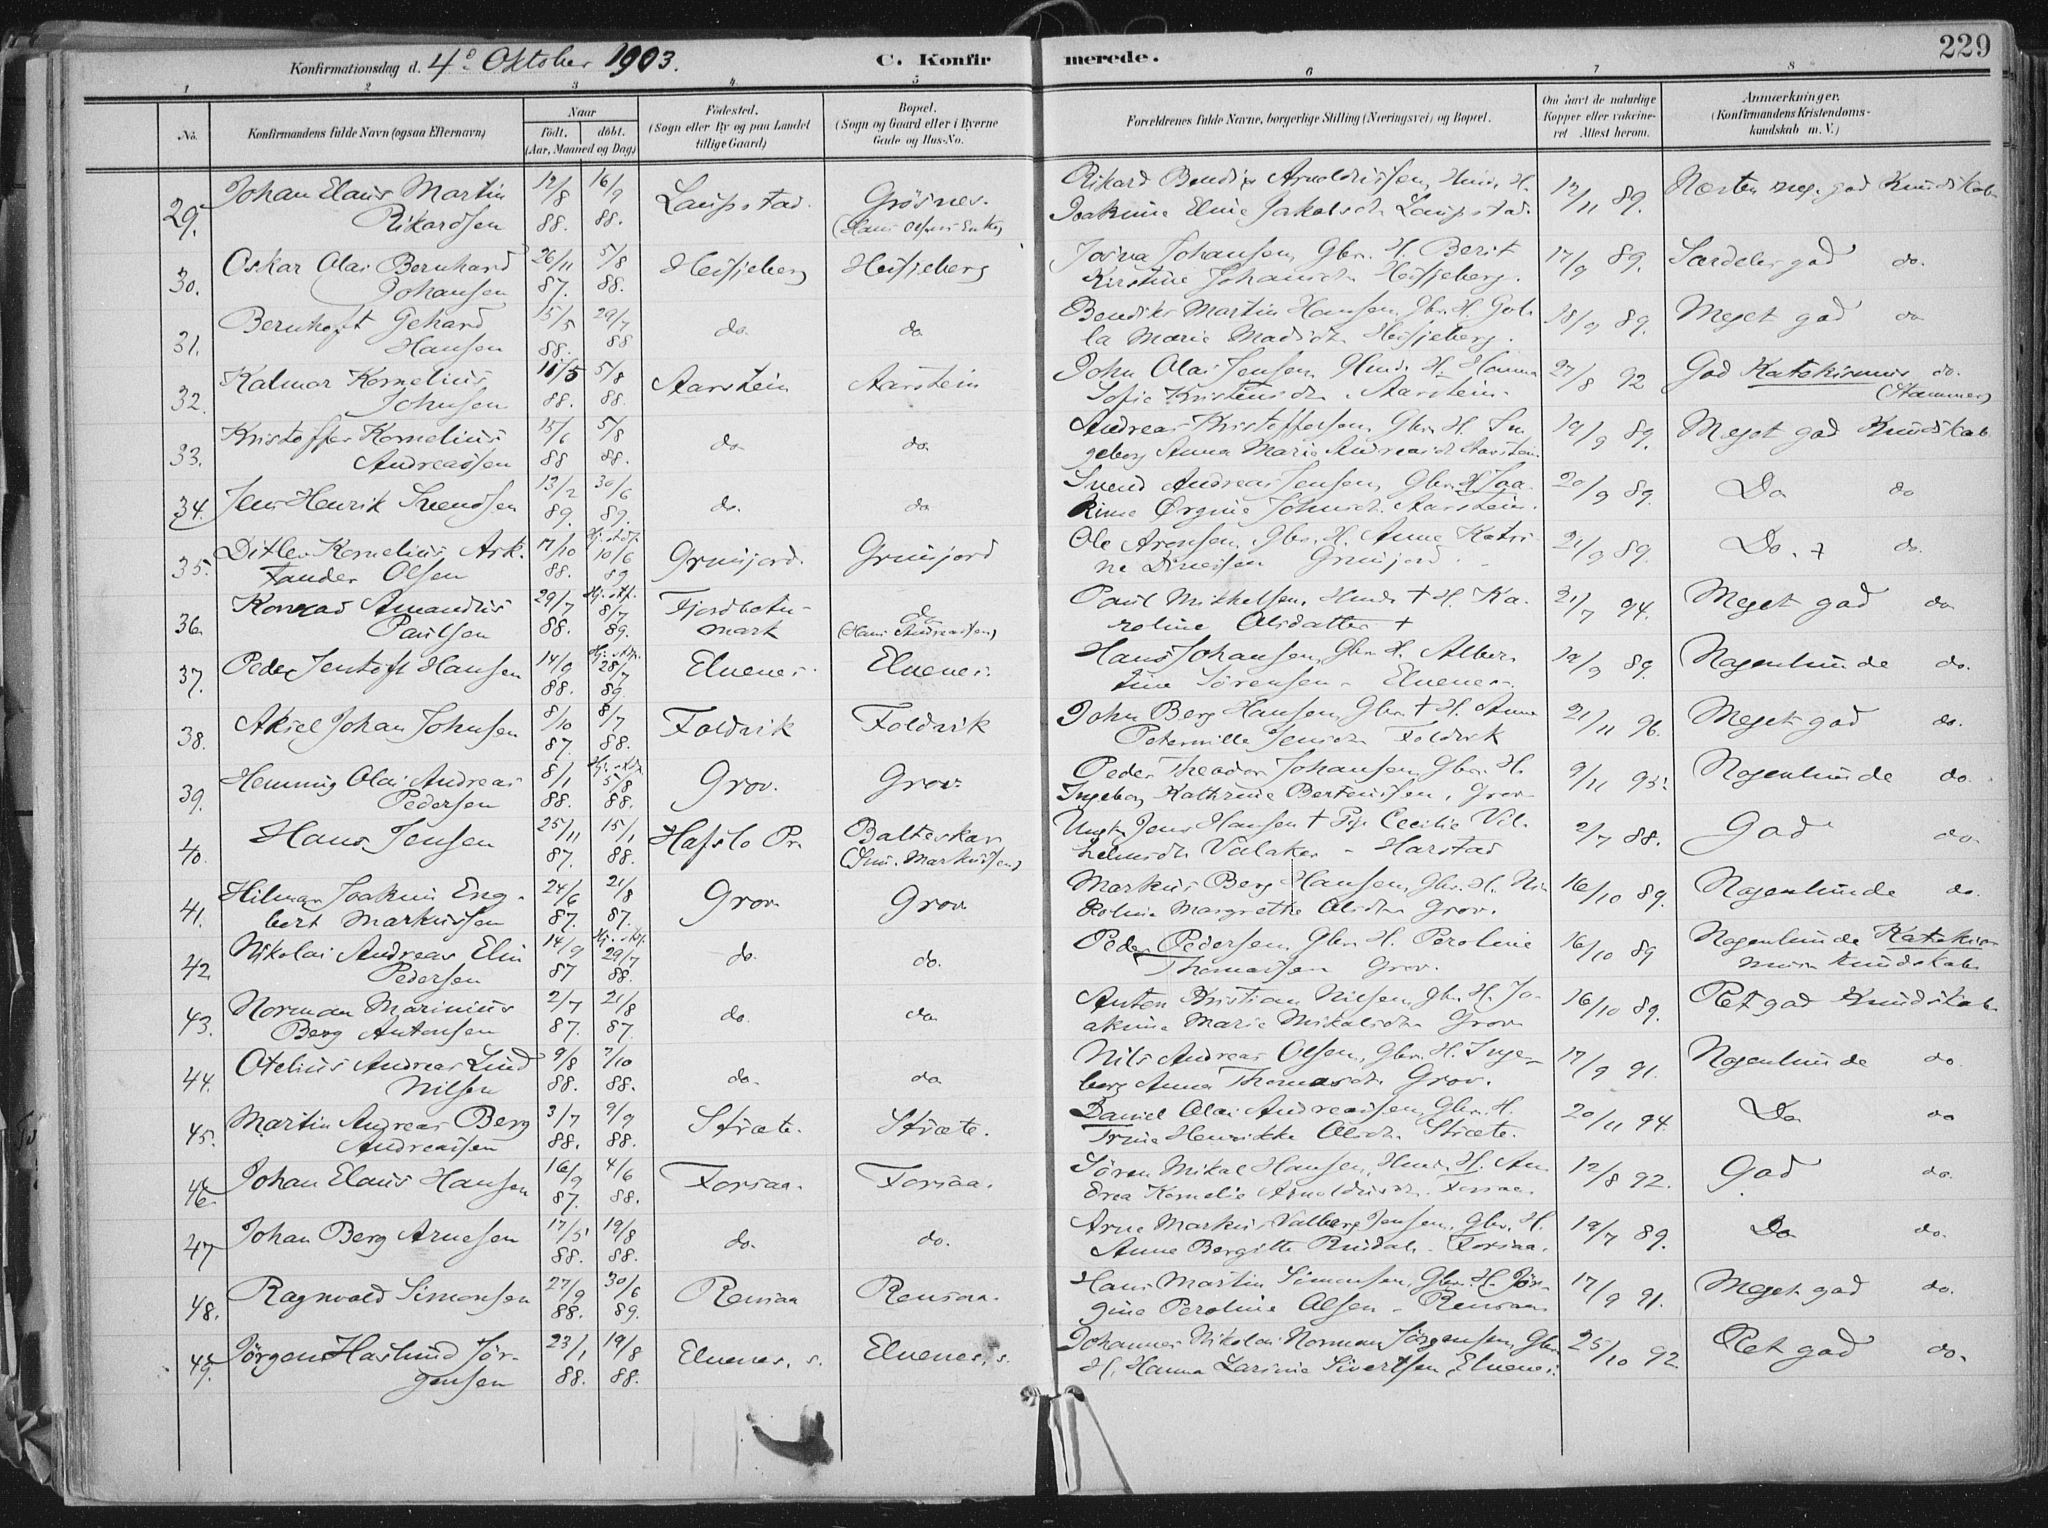 Konfirmationsdag d. 4de Oktober 1903. C. Konfirmerede. 229
1 2 3 4 5 6 7 8
No. Konfirmandens fulde Navn (ogsaa Efternavn) Naar født. døbt. (Aar, Maaned og Dag) Fødested. (Sogn eller By og paa Landet tillige Gaard) Bopæl. (Sogn og Gaard eller i Byerne Gade og Hus-No. Forældrenes fulde Navne, borgerlige Stilling (Næringsvei) og Bopæl. Om havt de naturlige Kopper eller vakcineret Attest herom. Anmærkninger. (Konfirmandens Kristendomskundskab m. V.)
29. Johan Elaus Martin 12/8 16/9 Laupstad. Grøsnes. Rikard Bendix Arnoldussen, H. 12/11 89. Næsten meg. god Kundskab
Rikardsen 88. 88. Joakime Eline Jakobsdr Laupstad.
30. Oskar Olai Bernhard 26/11 5/8 Heisjeberg Heisjeberg Johansen, Gbr. H. Berit 17/9 89. Særdeles god do.
Johansen 87. 88. Kirstine Johansdr Heisjeberg.
31. Bernhoft Gehard 15/5 29/7 do. do. Bendiks Martin Hansen, Gbr. H. 18/9 89. Meget god do
Hansen 88. 88 Marie Heisjeberg.
32. Kalmar Kornelius 11/5 5/8 Aarstein Aarstein John Olai Jensen, H. Hanna 27/8 92 God Katekismus do.
Johnsen 88. 88. Sofie Kristensdr Aarstein. (Stammer)
33. Kristoffer Kornelius 15/6 5/8 do do. Andreas Kristoffersen, Gbr. H. In 19/9 89. Meget god Kundskab
Andreassen 88 88. geborg Anna Marie Andreasdr Aarstein.
34. Jens Henrik Svendsen 13/2 30/6 do. do Svend Andreas Jensen, Gbr. H. Joa 20/9 89. Do do
89. 89. kime Ørgine Johnsdr. Aarstein.
35. Ditlev Kornelius Ark. 17/10 Hj. døbt 10/6 Grunfjord. Grunfjord Ole Arensen, Gbr. H. Anne Katri 21/9 89. Do. + do.
Olsen 88. 89 ne Grunfjord.
36. Konrad Amandus 29/7 8/7 Fjordbotn do Paul Mikkelsen, † H. Ka 21/7 94. Meget god do
Paulsen 88. 89. mark (Hans Andreassen) roline Olsdatter †
37. Peder Jentoft Hansen 14/9 28/7 Elvenes. Elvenes. Hans Johansen, Gbr. H. Alber 18/9 89. Nogenlunde do.
88. 89 tine Sørensen – Elvenes.
38. Aksel Johan Johnsen 8/10 8/7 Foldvik Foldvik John Berg Hansen, Gbr. † H. Anne 21/11 96. Meget god do.
87. 88. Petermille Jensdr Foldvik
39. Hemming Olai Andreas 8/1 5/8 Grov. Grov. Peder Theodor Johansen, Gbr. H. 9/11 95. Nogenlunde do.
Pedersen 88. 88. Ingeborg Kathrine Berteussen, Grov
40. Hans Jensen 25/11 15/1 Hafslo Pr. Balteskar Ungk. Jens Hansen † Pige Cecilie Vil 2/7 88. God do.
87. 88. helmsdr Valaker – Harstad
41. Hilmar Joakim Eng- 24/6 21/8 Grov Grov Markus Berg Hansen, Gbr. H. Ni 16/10 89. Nogenlunde do.
bert Markussen 87. 87. koline Margrethe Olsdr Grov.
42 Nikolai Andreas Elin 14/9 29/7 do. do. Peder Pedersen, Gbr. H. Peroline 16/10 89 Nogenlunde Katekis-
Pedersen 87 88. Thomassen Grov. mus kundskab
43. Norman Marinius 2/7 21/8 do do Anton Kristian Nilsen, Gbr. H. Jo- 16/10 89. Ret god Kundskab
Berg Antonsen 87. 87. akime Marie Mikalsdr Grov
44. Otelius Andreas Lind 9/8 7/10 do. do Nils Andreas Olsen, Gbr. H. Inge- 17/9 91. Nogenlunde do
Nilsen 88. 88. borg Anna Thomasdr. Grov.
45. Martin Andreas Berg 3/7 9/9 Stræte. Stræte. Daniel Olai Andreassen, Gbr. H. 20/11 94. Do do
Andreassen 88. 88. Trine Henrikke Olsdr Stræte.
46. Johan Elaus Hansen 16/9 4/6 Forsaa. Forsaa. Søren Mikal Hansen, H. An 12/8 92. God do.
87. 88. drea Kornelie Arnoldusdr. Forsaa
47 Johan Berg Arnesen 17/5 19/8 do. do. Arne Markus Valberg Jensen, Gbr. H. 19/7 89. Do do.
88. 88. Anne Bergitte – Forsaa.
48. Ragnvald Simonsen 27/9 30/6 Rensaa Rensaa. Hans Martin Simonsen, Gbr. H. Jør 17/9 91. Meget god do.
88. 89. gine Peroline Olsen – Rensaa
49. Jørgen Haslund Jør- 23/1 19/8 Elvenes, s. Elvenes, s. Johannes Nikolai Norman Jørgensen, Gbr. 25/10 92. Ret god do.
gensen 88. 88. H. Hanna Larsine Sivertsen, Elvenes.